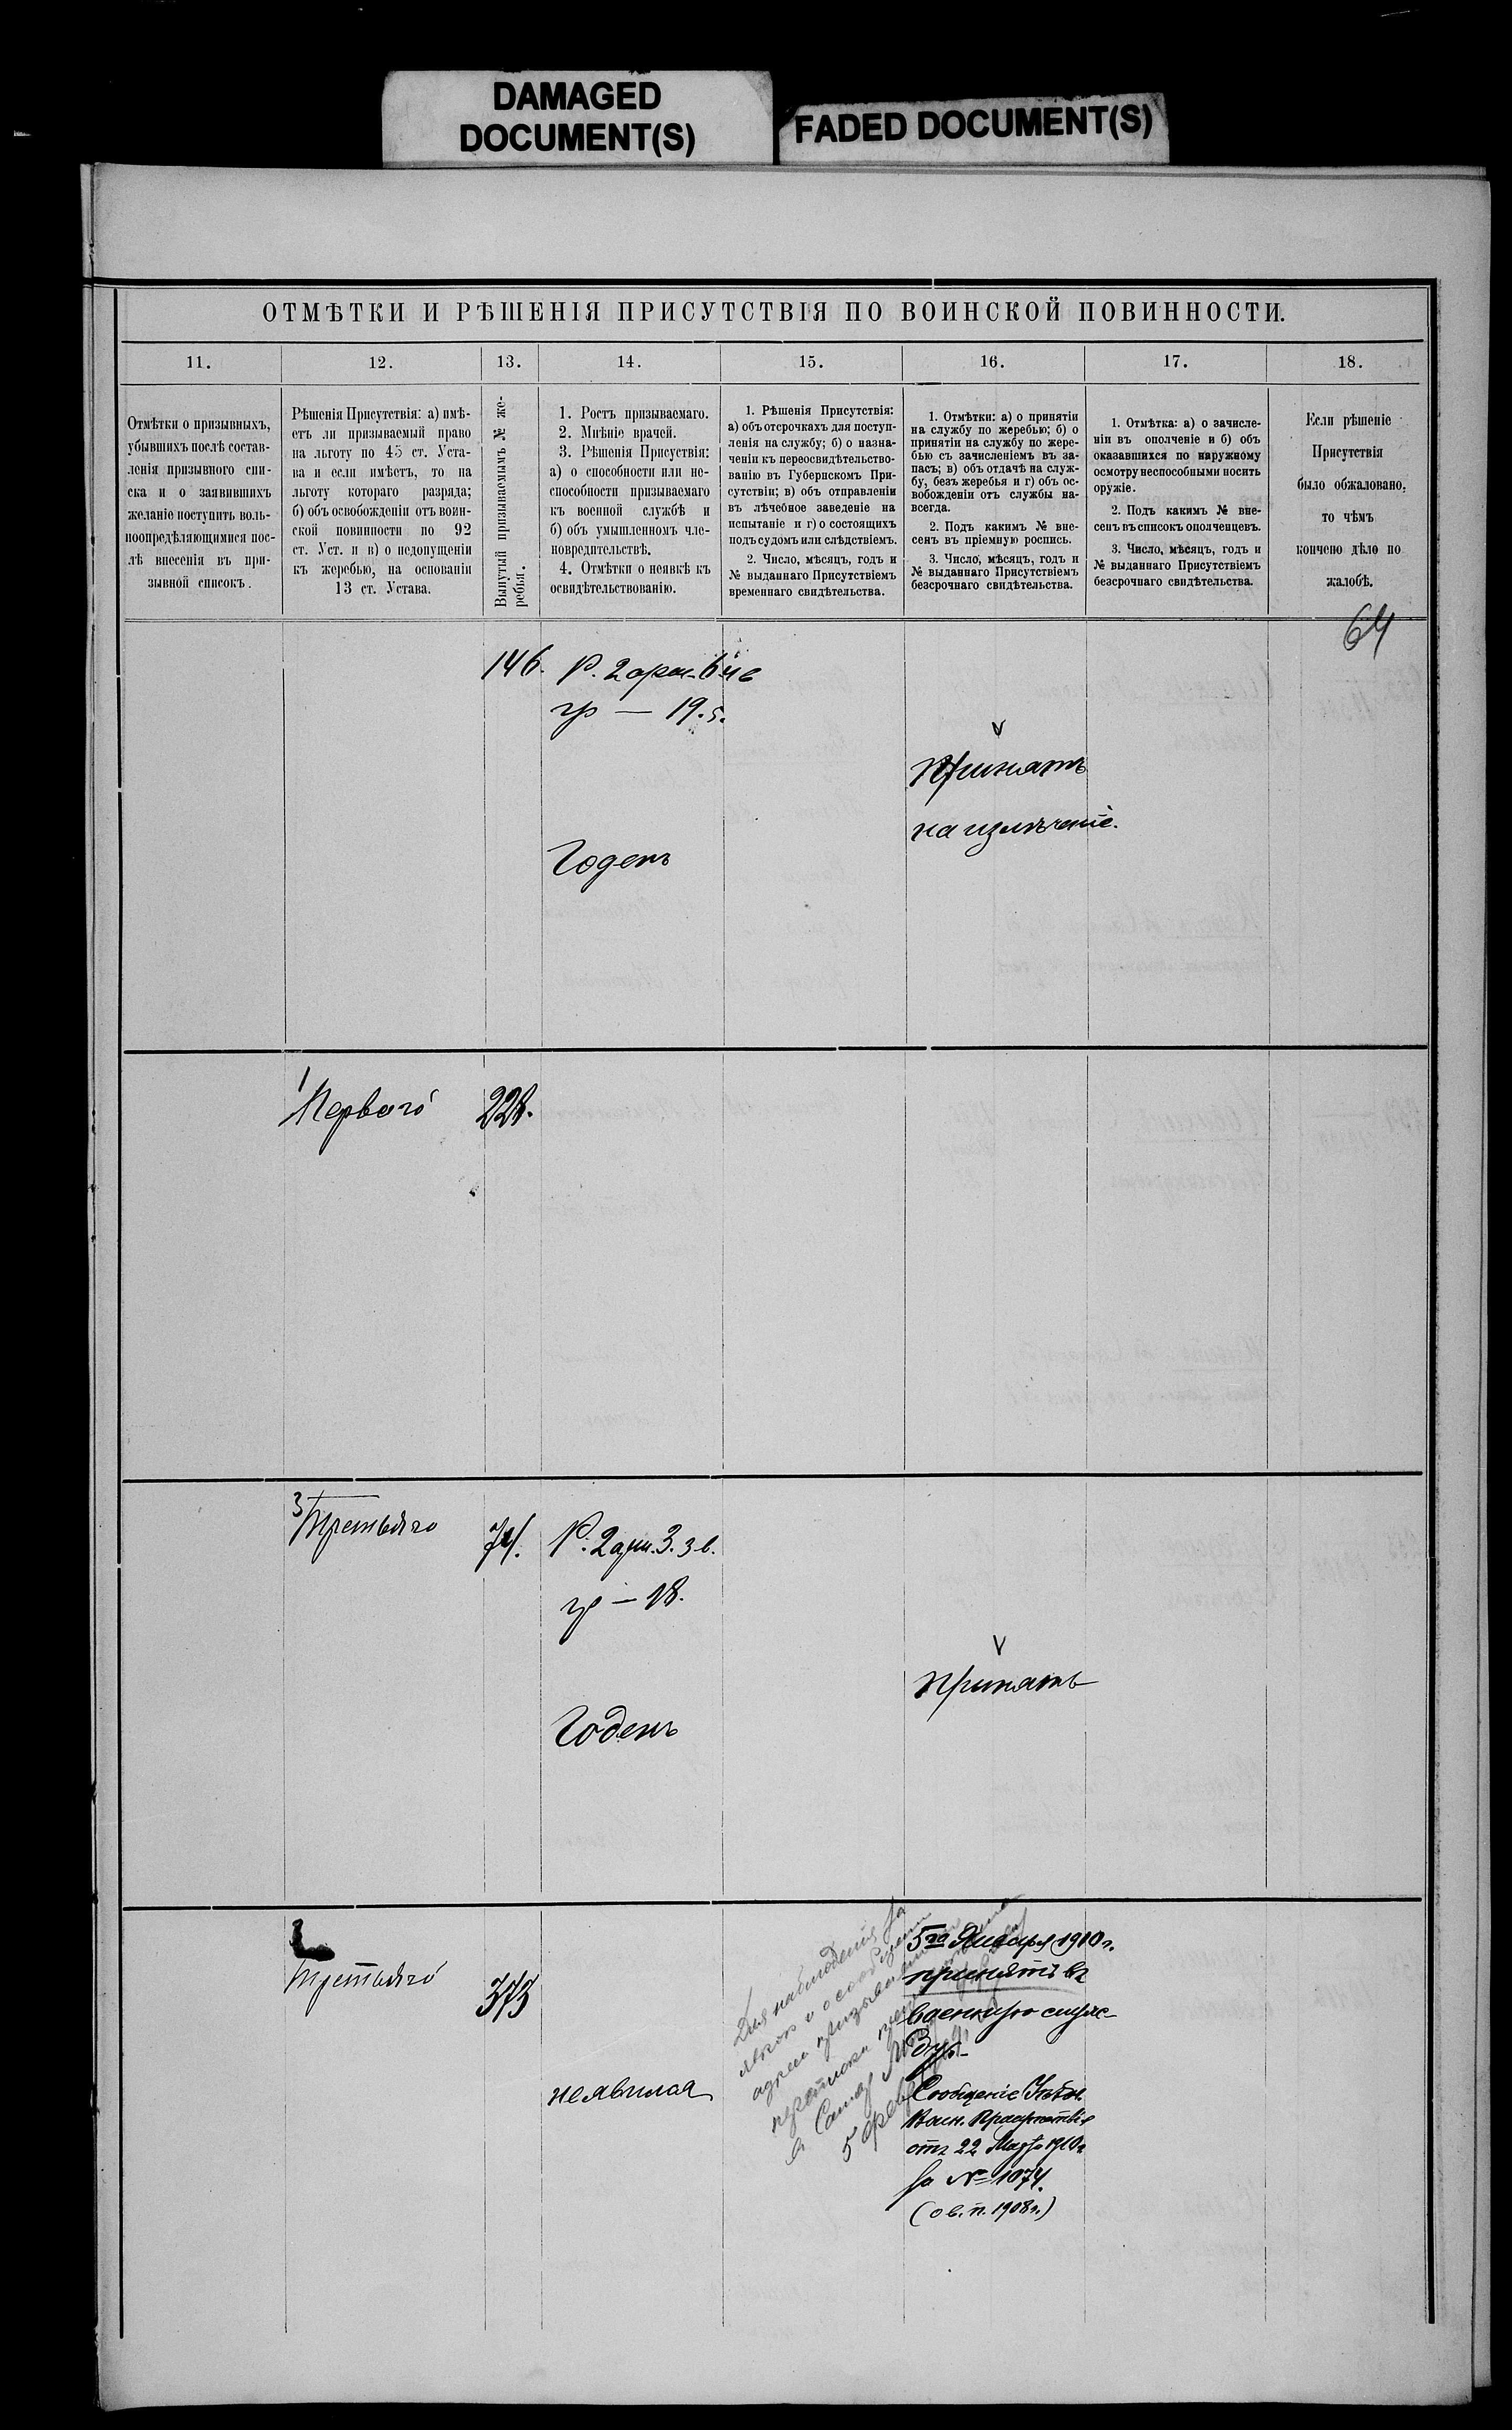 DAMAGED
DOCUMENT(S)
FADED DOCUMENT(S)
ОТМѢТКИ И РѢШЕНІЯ ПРИСУТСТВІЯ ПО ВОИНСКОЙ ПОВИННОСТИ.
11.
12.
13.
14.
15.
16.
17.
18.
Отмѣтки о призывныхъ,
убывшихъ послѣ состав-
ленія призывного спи-
ска и о заявившихъ
желаніе поступить воль-
ноопредѣляющимися пос-
лѣ внесенія въ при-
зывной списокъ.
Рѣшенія Присутствія: а) имѣ-
етъ ли призываемый право
на льготу по 45 ст. Уста-
ва и если имѣетъ, то на
льготу котораго разряда;
б) объ освобожденіи отъ воин-
ской повинности по 92
ст. Уст. и в) о недопущеніи
къ жеребью, на основаніи
13 ст. Устава.
Вынутый призываемымъ № же-
ребья.
1. Ростъ призываемаго.
2. Мнѣніе врачей.
3. Рѣшенія Присуствія:
а) о способности или не-
способности призываемаго
къ военной службѣ и
б) объ умышленномъ чле-
новредительствѣ.
4. Отмѣтки о неявкѣ къ
освидѣтельствованію.
1. Рѣшенія Присутствія:
а) объ отсрочкахъ для поступ-
ленія на службу; б) о назна-
ченіи къ переосвидѣтельство-
ванію въ Губернскомъ При-
сутствіи; в) объ отправленіи
въ лѣчебное заведеніе на
испытаніе и г) о состоящихъ
подъ судомъ или слѣдствіемъ.
2. Число, мѣсяцъ, годъ и
№ выданнаго Присутствіемъ
временнаго свидѣтельства.
1. Отмѣтки: а) о принятіи
на службу по жеребью; б) о
принятіи на службу по жере-
бью съ зачисленіемъ въ за-
пасъ; в) объ отдачѣ на служ-
бу, безъ жеребья и г) объ ос-
вобожденіи отъ службы на-
всегда.
2. Подъ какимъ № вне-
сенъ въ пріемную роспись.
3. Число, мѣсяцъ, годъ и
№ выданнаго Присутствіемъ
безсрочнаго свидѣтельства.
1. Отмѣтка: а) о зачисле-
ніи въ ополченіе и б) объ
оказавшихся по наружному
осмотру неспособными носить
оружіе.
2. Подъ какимъ № вне-
сенъ въ списокъ ополченцевъ.
3. Число, мѣсяцъ, годъ и
№ выданнаго Присутствіемъ
безсрочнаго свидѣтельства.
Если рѣшеніе
Присутствія
было обжаловано,
то чѣмъ
кончено дѣло по
жалобѣ.
64
146. Р. 2 арш. 6 4 в
гр — 19.5.
Принятъ
на излѣченіе.
Годенъ
1
Перваго 228.
3
Третьяго 74. Р. 2 арш. 3. 3 в.
гр — 18.
Принятъ
Годенъ
Третьяго
373
неявился
Для наблюденія за
5го Января 1910 г.
принятъ въ
военную служ-
бу.
Сообщеніе
Воен. Присутствія
отъ 22 Марта 1910 г
за № 1074.
(о в. п. 1908 г.)